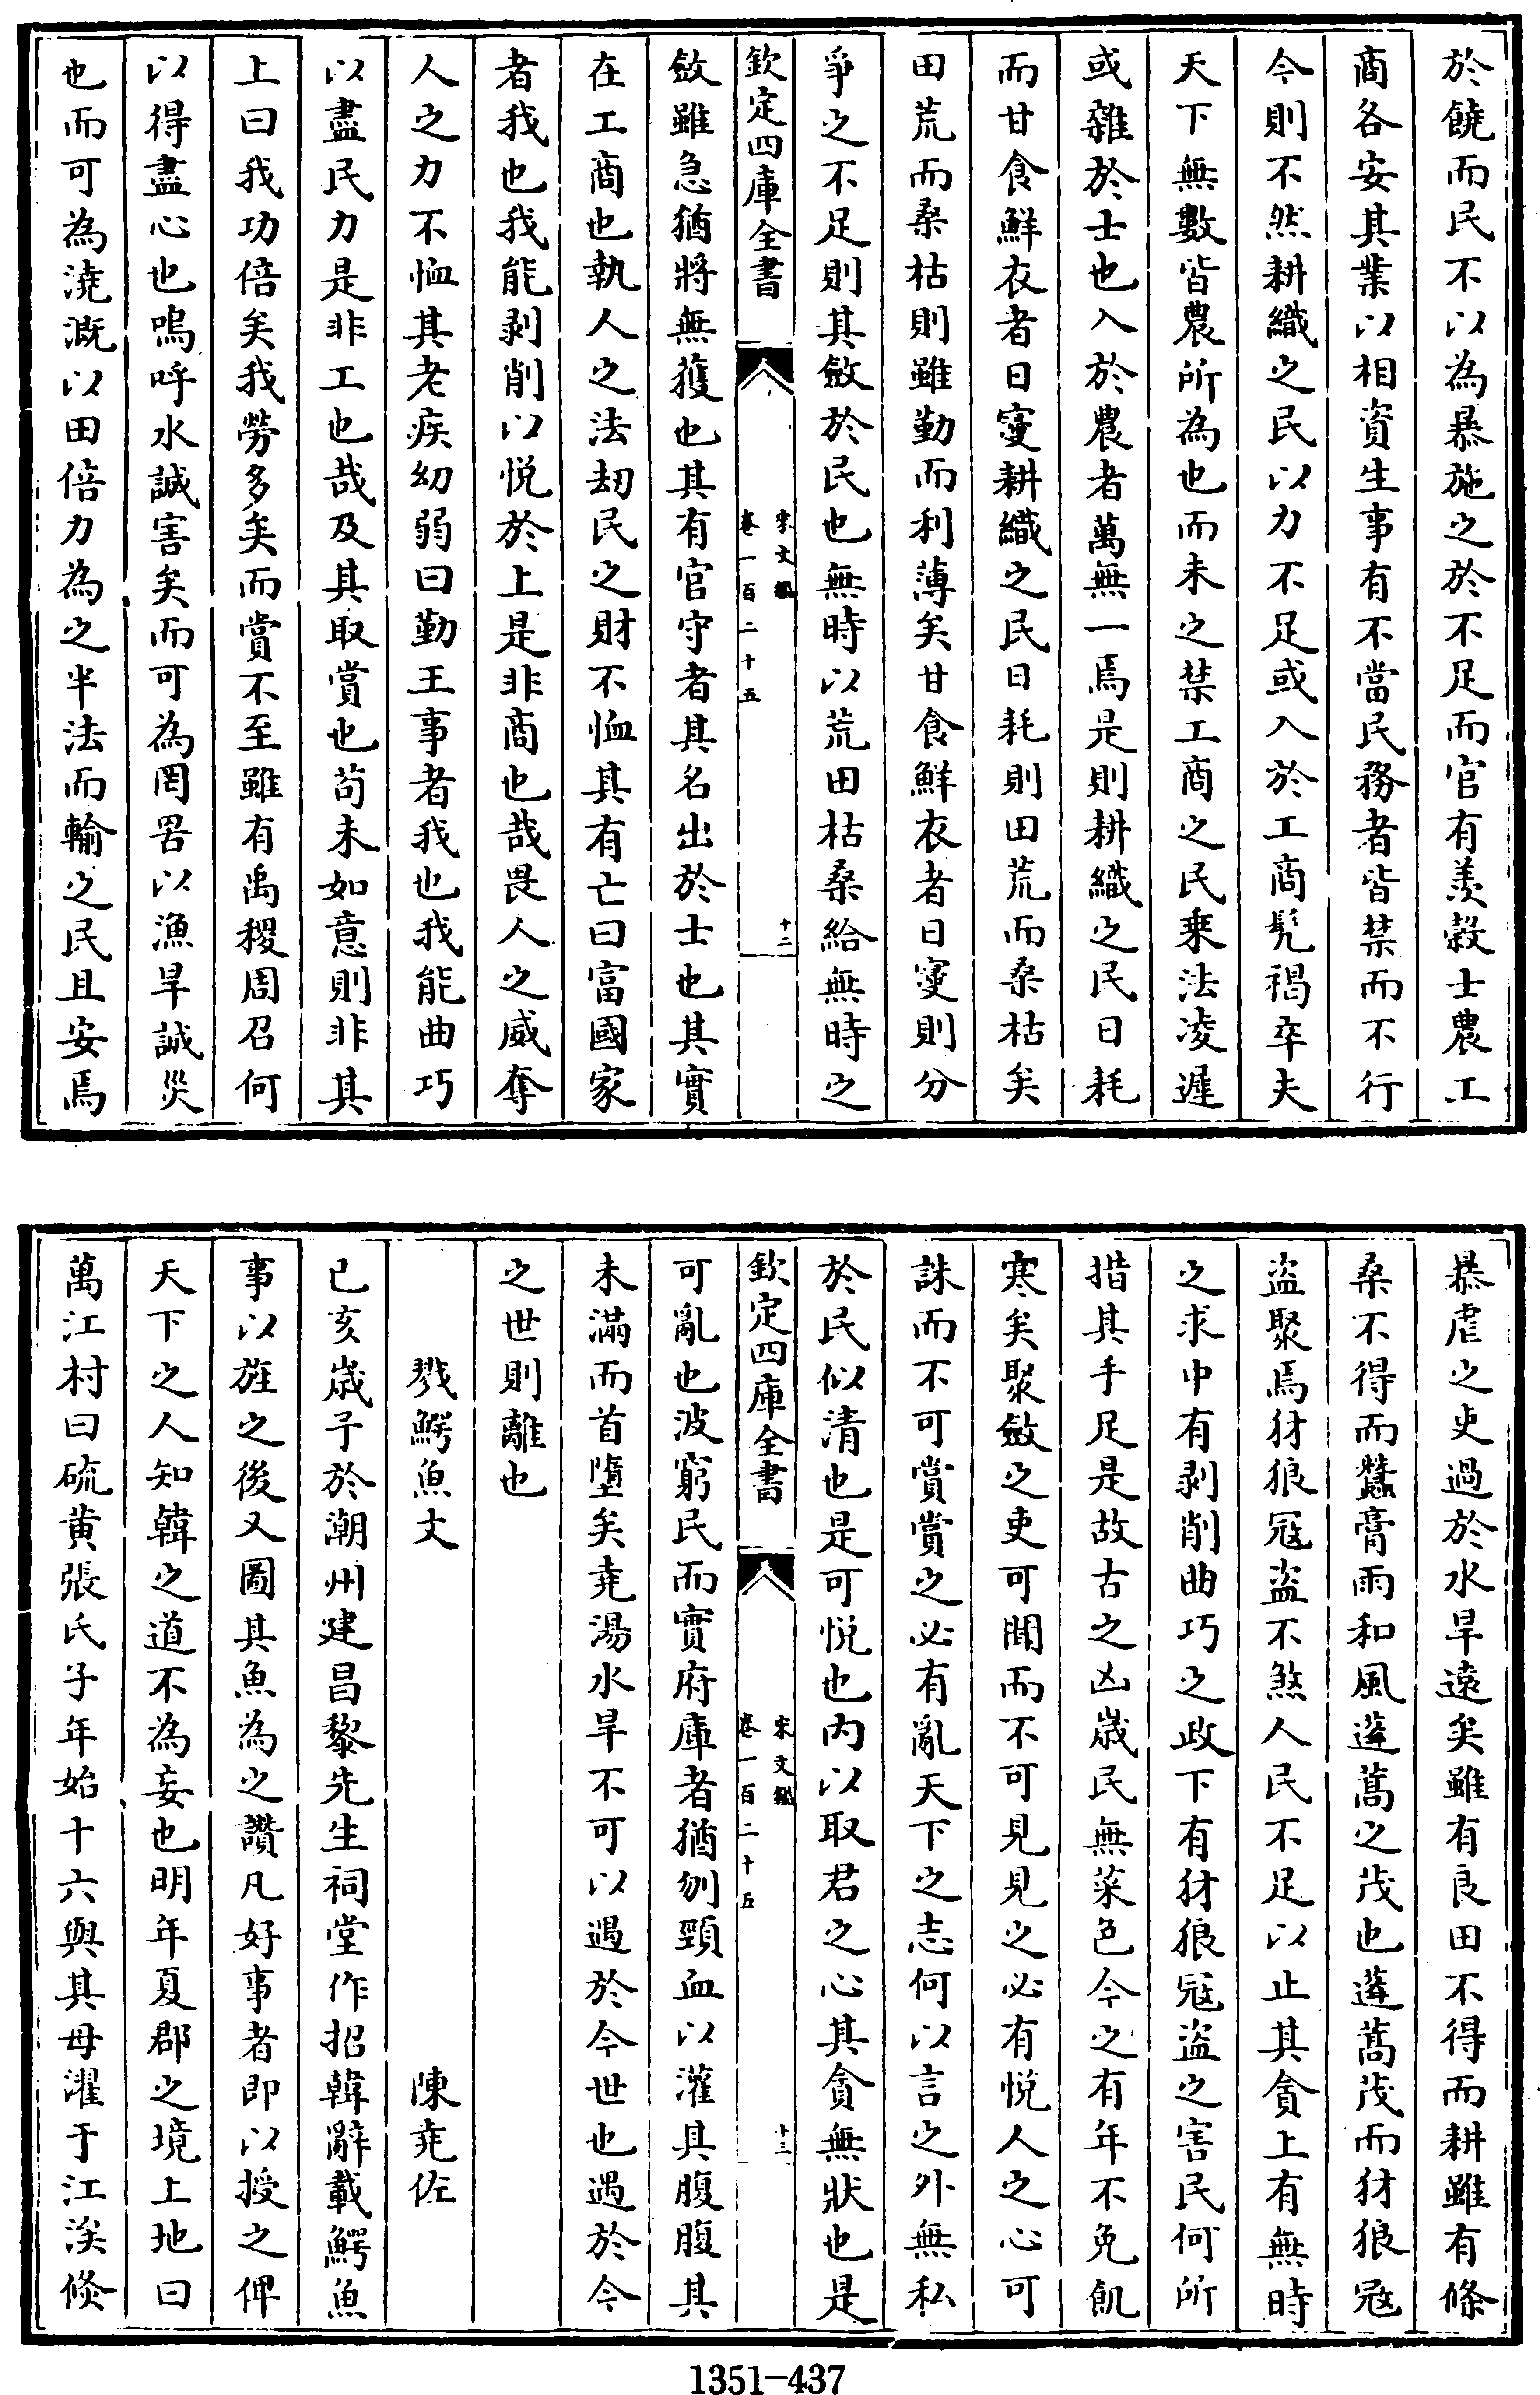 於饒而民不以為暴施之於不足而官有羨穀士農工
商各安其業以相資生事有不當民務者皆禁而不行
今則不然耕織之民以力不足或入於工商髡褐卒夫
天下無數皆農所為也而未之禁工商之民乘法凌遲
或雜於士也入於農者萬無一焉是則耕織之民日耗
而甘食鮮衣者日寖耕織之民日耗則田荒而桑枯矣
田荒而桑枯則雖勤而利薄矣甘食鮮衣者日寖則分
爭之不足則其斂於民也無時以荒田枯桑給無時之
欽定四庫全書
宋文鑑
卷一百二十五
十二
斂雖急猶將無獲也其有官守者其名出於士也其實
在工商也執人之法刧民之財不恤其有亡曰富國家
者我也我能剥削以悦於上是非商也哉畏人之威奪
人之力不恤其老疾幼弱曰勤王事者我也我能曲巧
以盡民力是非工也哉及其取賞也苟未如意則非其
上曰我功倍矣我勞多矣而賞不至雖有禹稷周召何
以得盡心也嗚呼水誠害矣而可為罔罟以漁旱誠災
也而可為澆溉以田倍力為之半法而輸之民且安焉
暴虐之吏過於水旱遠矣雖有良田不得而耕雖有條
桑不得而蠶膏雨和風蓬蒿之茂也蓬蒿茂而豺狼冦
盜聚焉豺狼冦盜不煞人民不足以止其貪上有無時
之求中有剥削曲巧之政下有豺狼冦盜之害民何所
措其手足是故古之凶嵗民無菜色今之有年不免飢
寒矣聚斂之吏可聞而不可見見之必有悦人之心可
誅而不可賞賞之必有亂天下之志何以言之外無私
於民似清也是可悦也内以取君之心其貪無狀也是
欽定四庫全書
宋文鑑
卷一百二十五
十三
可亂也波窮民而實府庫者猶刎頸血以灌其腹腹其
未滿而首墮矣堯湯水旱不可以過於今世也過於今
之世則離也
戮鰐魚文　陳堯佐
已亥嵗予於潮州建昌黎先生祠堂作招韓辭載鰐魚
事以旌之後又圖其魚為之讚凡好事者即以授之俾
天下之人知韓之道不為妄也明年夏郡之境上地曰
萬江村曰硫黄張氏子年始十六與其母濯于江涘倐
1351-437